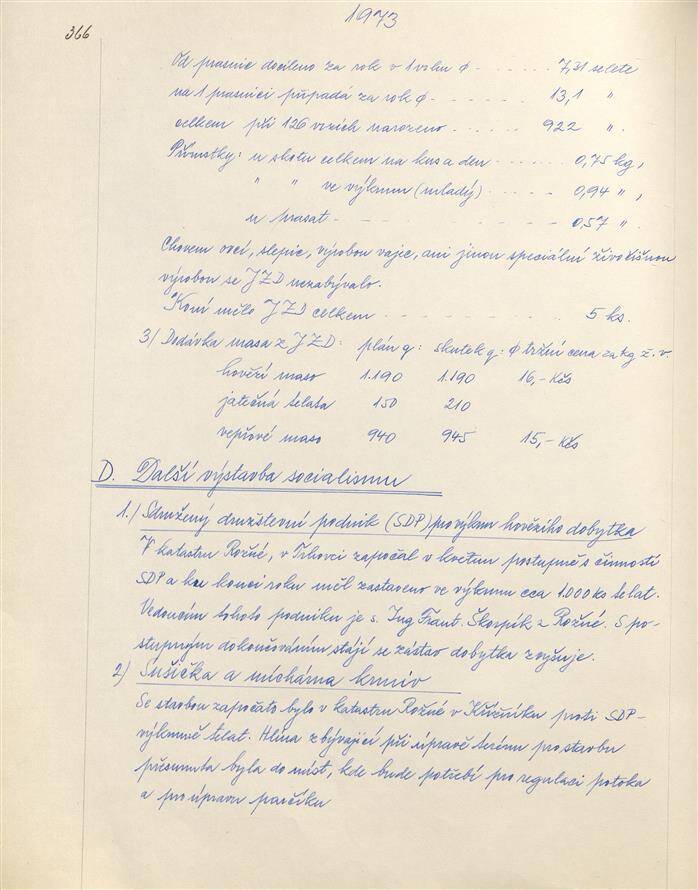 1973
366
Od prasnic docíleno za rok v 1 vrhu ø - - - - - - 7,31 selete
na 1 prasnici připadá za rok ø - - - - - - - 13,1 "
celkem při 126 vrzích narozeno - - - - - - 922 " .
Přírůstky: u skotu celkem na kus a den - - - - - 0,75 kg,
" " ve výkrmu (mladý) - - - - - 0,94 " ,
u prasat - - - - - - - - - - - - 0,57 " .
Chovem ovcí, slepic, výrobou vajec, ani jinou speciální živočišnou
výrobou se JZD nezabývalo.
Koní mělo JZD celkem - - - - - - - - - 5 ks.
3/ Dodávka masa z JZD: plán q: skutek q: ø tržní cena za kg ž. v.
hovězí maso 1.190 1.190 16,- Kčs
jatečná telata 150 210
vepřové maso 940 945 15,- Kčs
D. Další výstavba socialismu
1.) Sdružený družstevní podnik (SDP) pro výkrm hovězího dobytka
V katastru Rožné, v Trhovci započal v květnu postupně s činností
SDP a ku konci roku měl zastaveno ve výkrmu cca 1.000 ks telat.
Vedoucím tohoto podniku je s. Ing Frant. Škorpík z Rožné. S po-
stupným dokončováním stájí se zástav dobytka zvyšuje.
2) Sušička a míchárna krmiv
Se stavbou započato bylo v katastru Rožné v Křížníku proti SDP-
výkrmně telat. Hlína zbývající při úpravě terénu pro stavbu
přesunuta byla do míst, kde bude potřebí pro regulaci potoka
a pro úpravu parčíku